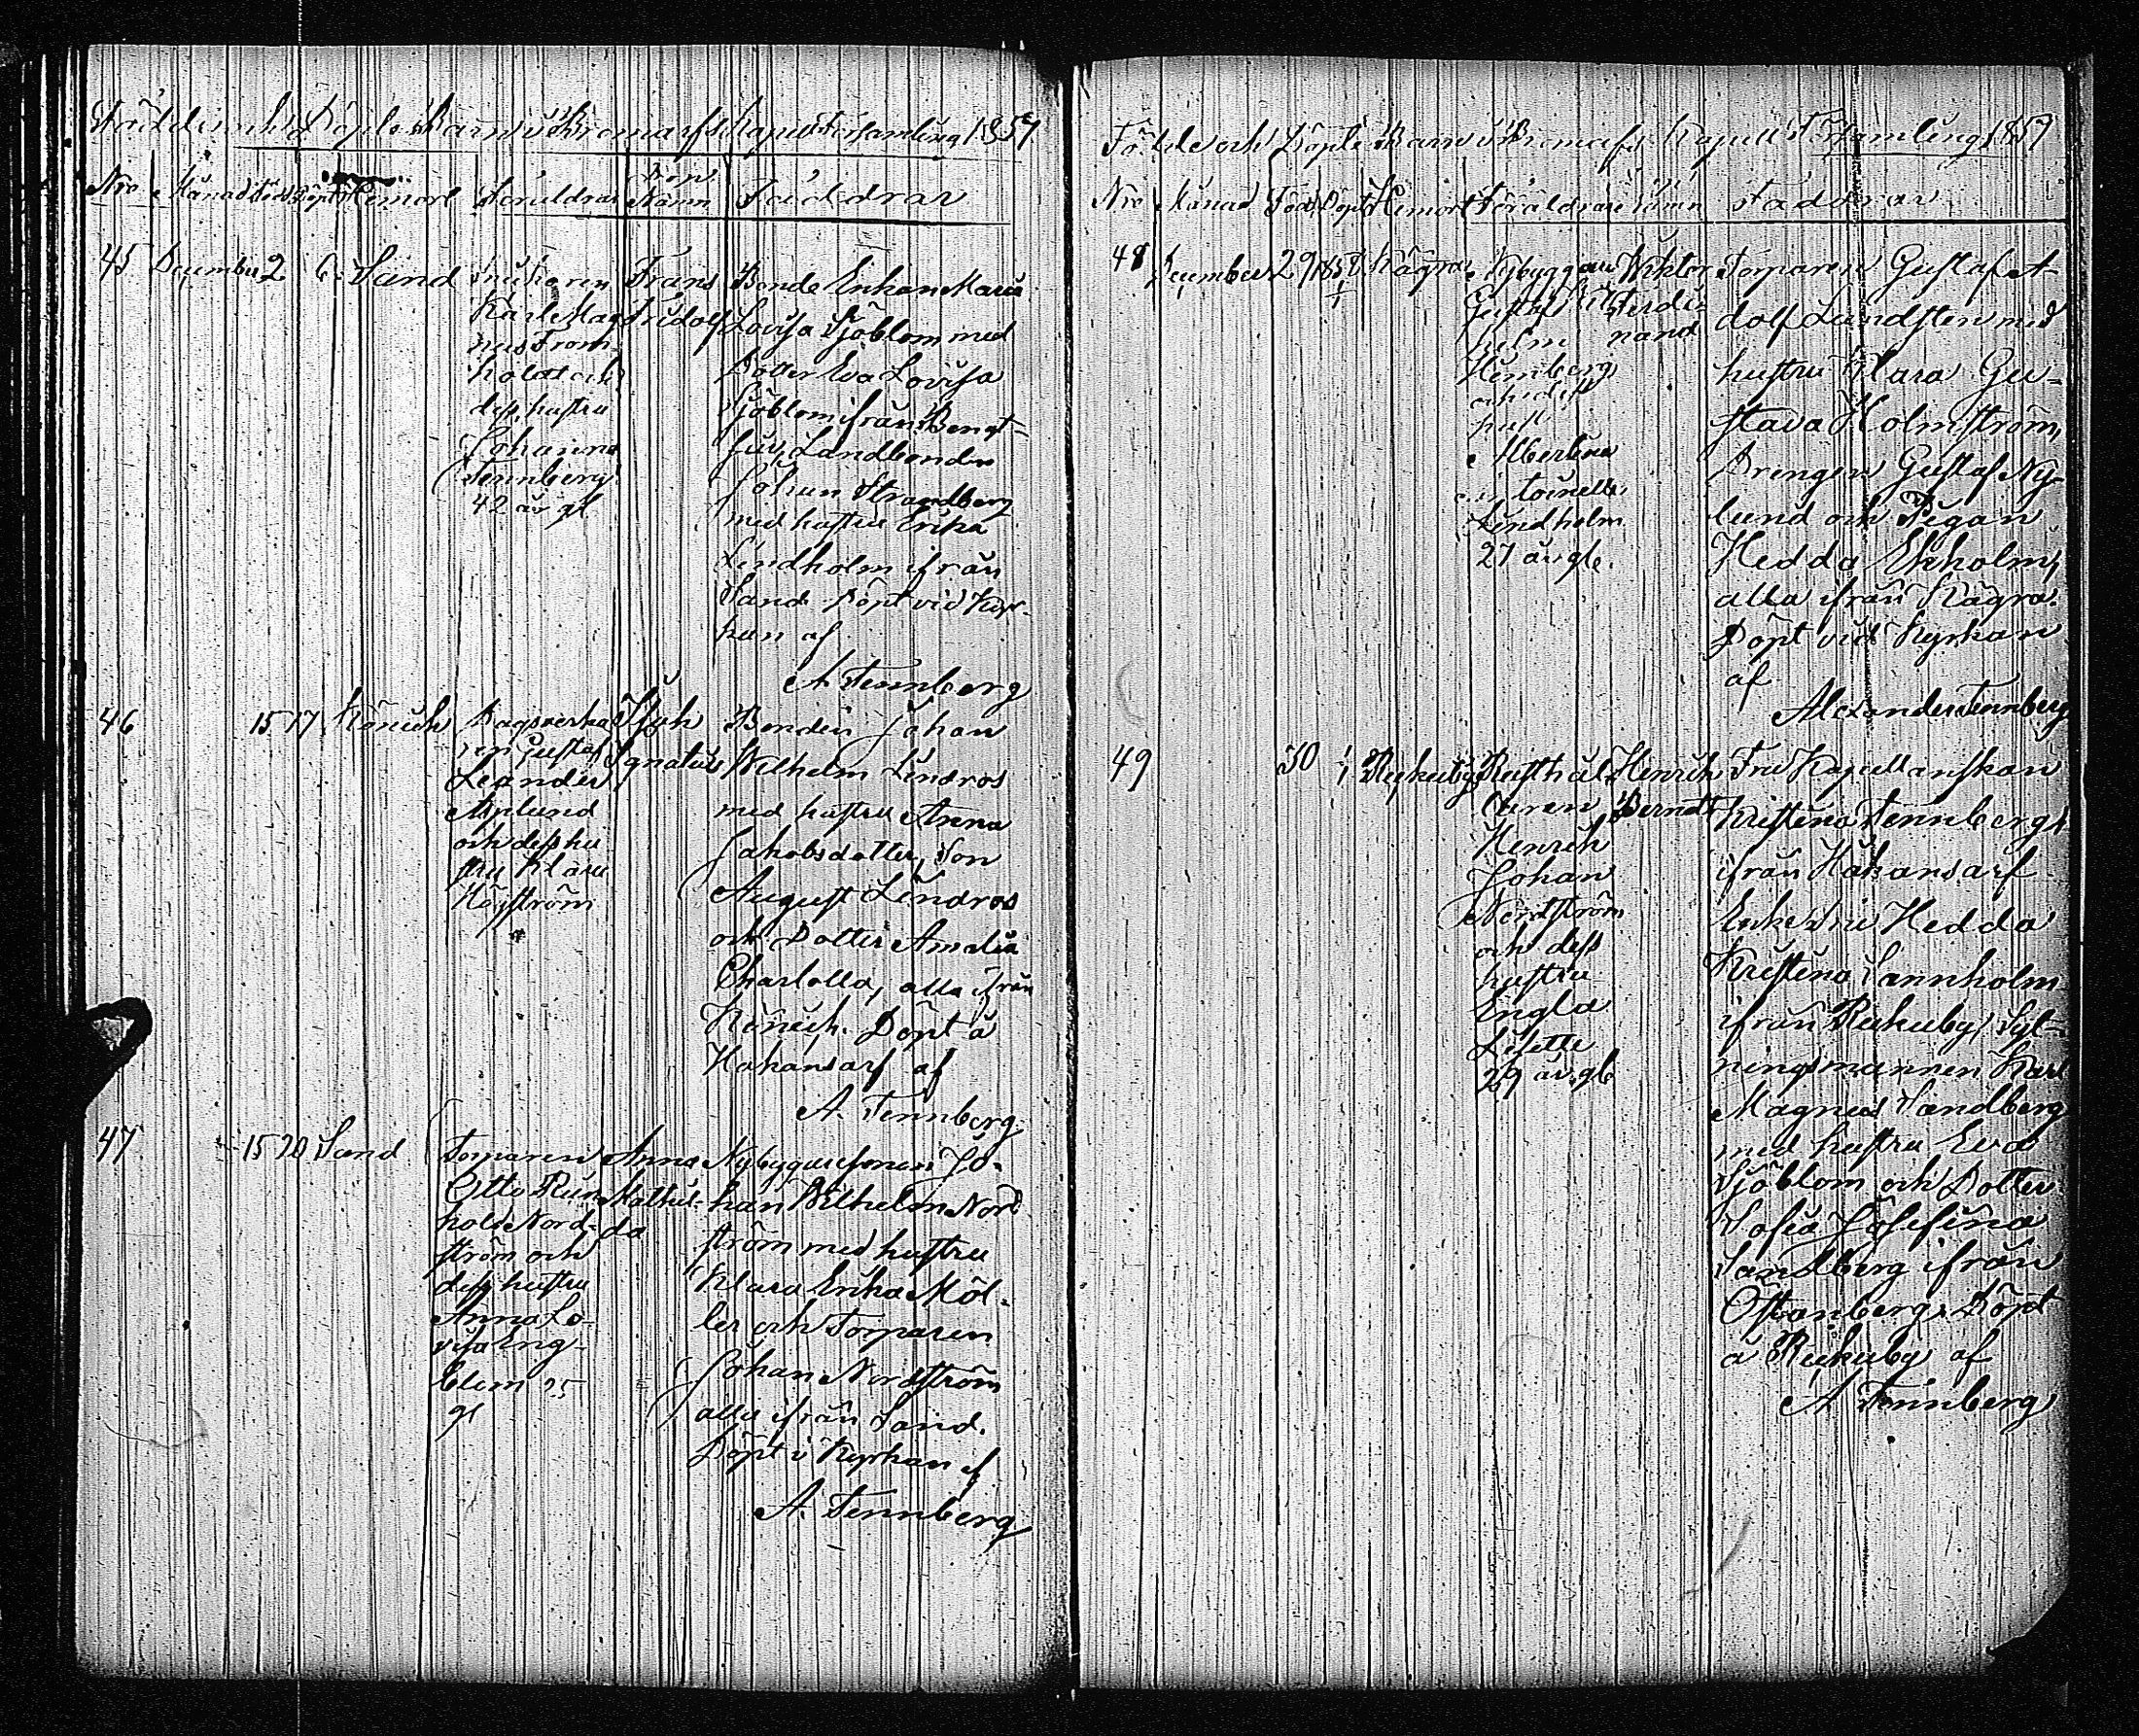 Födde och Döpte Barn i Bromarfs Kapell Församling 1859
Nro Månad Född Döpt Hemort Föräldrar Barn Namn Faddrar
45 December 2 6 Sand
Karl Mag
nus From
hold och
dess hustru
Johanna
Tennberg
42 år gl
Frans
Fridolf
Bonde Enkan Maria
Lovisa Sjöblom med
Dotter Eva Lovisa
Sjöblom ifrån Bengt-
Landbonden
Johan Strandberg
med hustru Erika
Lindholm ifrån
Sand Döpt vid Kyr-
kan af
A Tennberg
46 15 17
Dagsverka
ren Gustaf
Leander
Asplund
och dess hu
stru Klara
Höjström
Ignatius
Bonden Johan
Wilhelm Lindros
med hustru Anna
Jakobsdotter, Son
August Lindros
och Dotter Amalia
Charlotta, alla ifrån
Döpt å
Håkansarf af
A. Tennberg
47 15 20 Sand
Torparen
Otto Rein
hold Nord-
ström och
dess hustru
Anna Lo-
visa Eng-
blom 25
gl
Anna
Mathil-
da
Nybyggaresonen Jo-
han Wilhelm Nord
ström med hustru
Klara Erika Möl-
ler och Torparen
Johan Nordström
alla ifrån Sand.
Döpt i Kyrkan af
A. Tennberg
Födde och Döpte Barn i Bromarfs Kapell Församling 1859
Nro Månad Född Döpt Hemort Föräldrar Namn Faddrar
48 December 29 Kägra
Nybyggaren
Gustaf Wil
helm
Hemberg
och dess
hust
Albertina
Lindholm
27 år gl.
Wiktor
Ferdi-
nand
Torparen Gustaf A-
dolf Lundsten med
hustru Klara Gu-
stava Holmström,
Drengen Gustaf Ny-
lund och Pigan
Hedda Ekholm,
alla ifrån Kägra.
Döpt vid Kyrkan
af
Alexander Tennberg
49 30
Rusthål
laren
Henrik
Johan
Nordström
och dess
hustru
Engla
Lisette
29 år gl
Henrik
Berndt
Fru Kapellanskan
Kristina Tennberg
ifrån Håkansarf
Enkefru Hedda
Kristina Sannholm
ifrån Rukuby,
Karl
Magnus Sandberg
med hustru Eva
Sjöblom och Dotter
Sofia Josefina
Sandberg ifrån
Östanberg. Döpt
å Rukuby af
A Tennberg